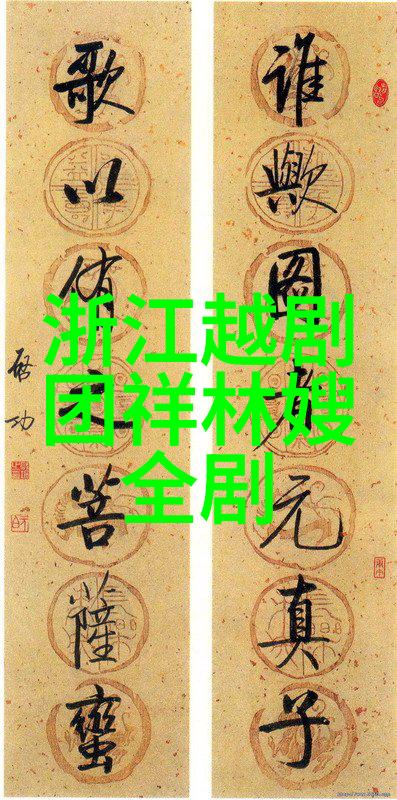 谁歟圖者元真子
歌以侑之菩薩蠻
启功
浙江越剧
团祥林嫂
全剧